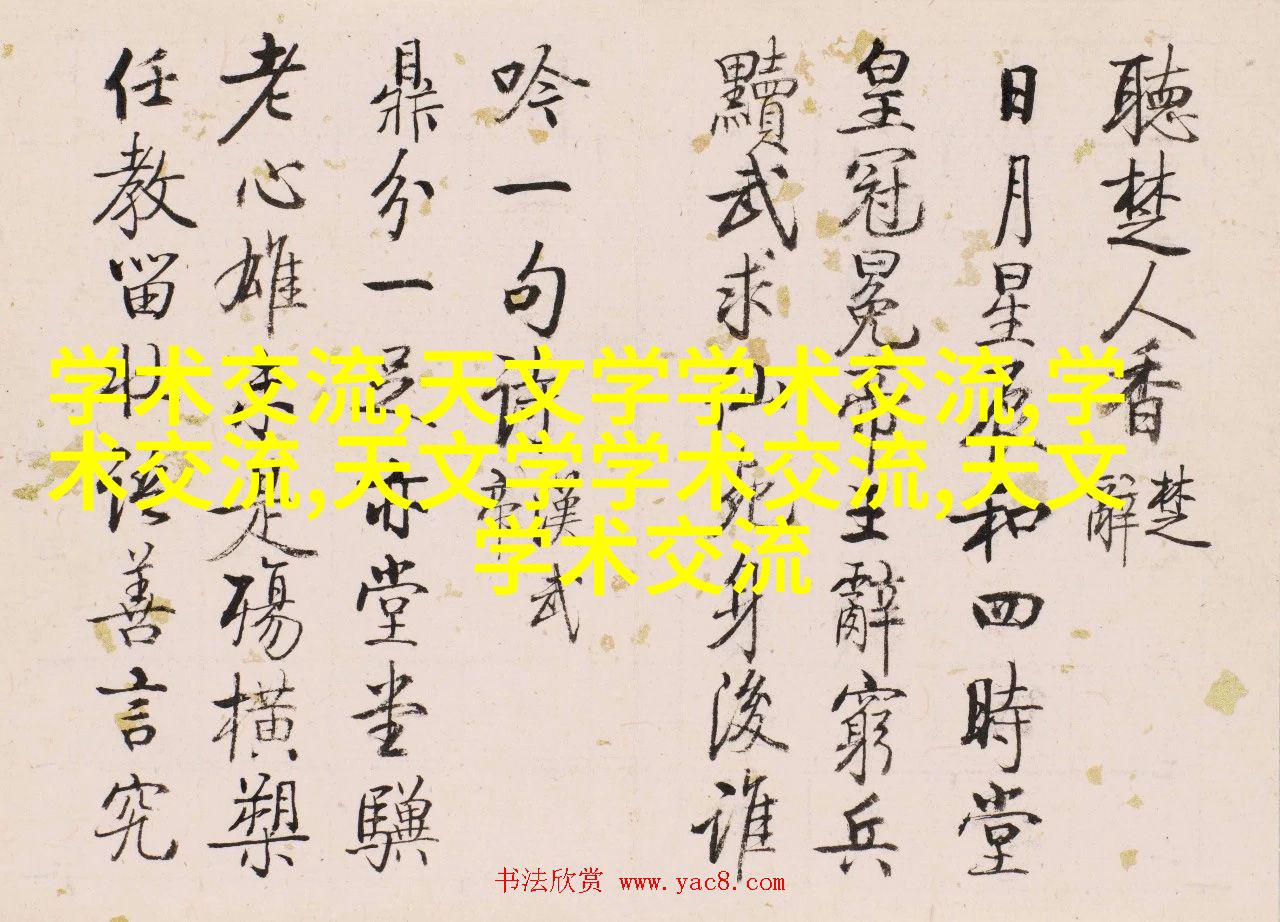 聽楚人香 楚辭
日月星辰和四時堂
皇冠冕帝王辭窮兵
黷武求仙死身後誰
吟一句詩 漢武帝
鼎分一足亦堂堂驥
老心雄未是殤橫槊
任教留善言究
学术交流,天文学学术交流,学
术交流,天文学学术交流,天文
学术交流
书法欣赏 www.yac8.com